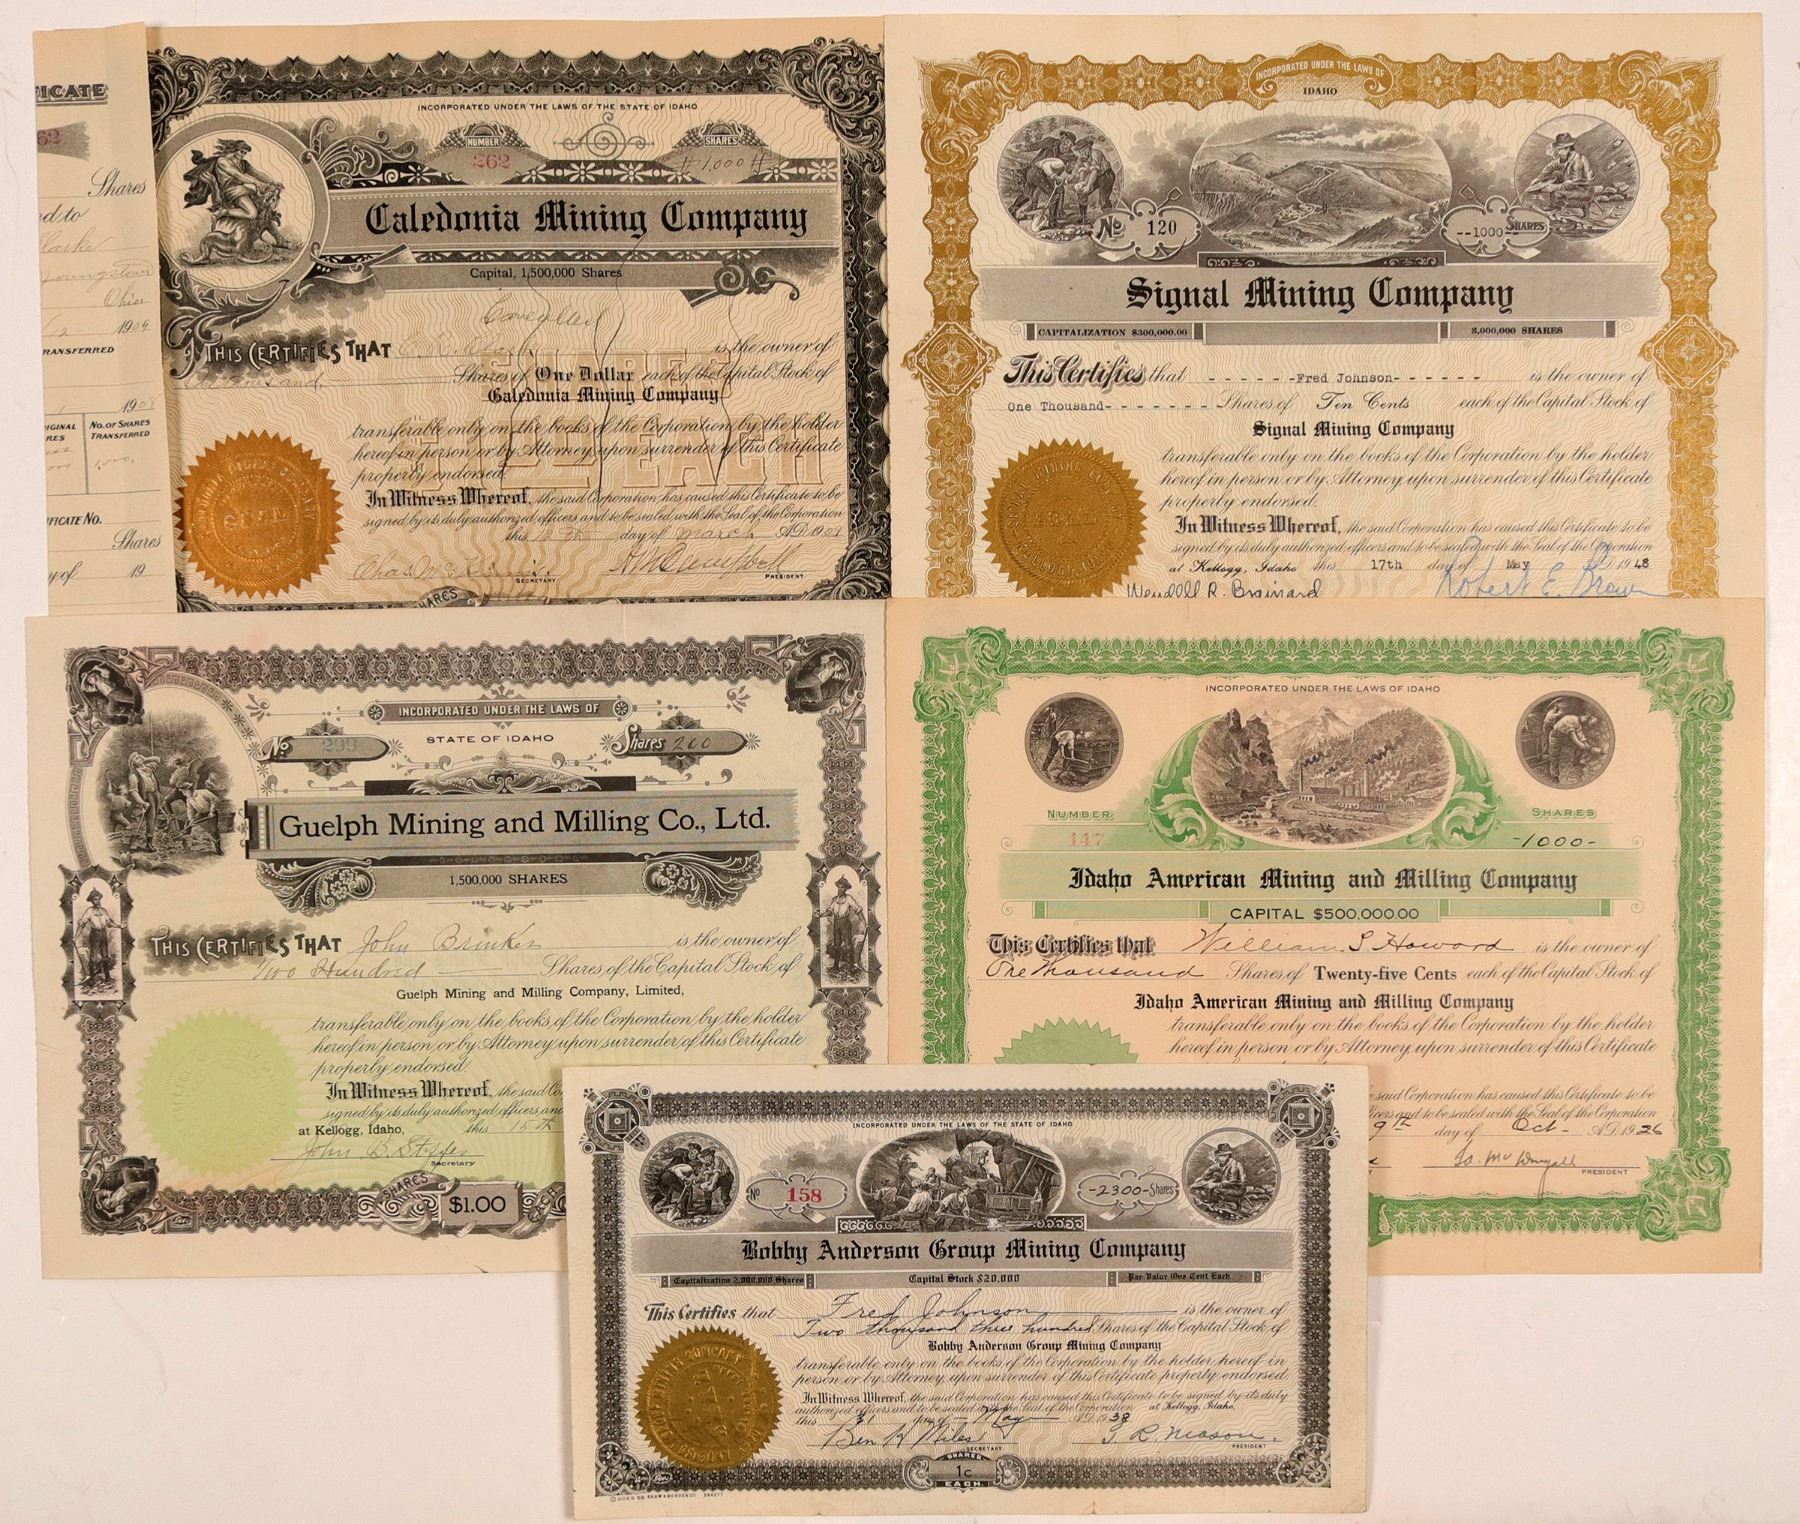 ICATE
62
Shares
ed to
Ohio
12 1909
TRANSFERRED
1908
NO. OF SHARES TRANSFERRED
1,000.
IFICATE NO.
Shares
19
INCORPORATED UNDER THE LAWS OF THE STATE OF IDAHO
NUMBER 262
SHARES 1,000
Caledonia Mining Company
Capital, 1,500,000 Shares
Cancelled
THIS CERTIFIES THAT is the owner of
Shares of One Dollar each of the Capital Stock of
Caledonia Mining Company
transferable only on the books of the Corporation by the holder
hereof in person or by Attorney upon surrender of this Certificate
properly endorsed.
In Witness Whereof, the said Corporation has caused this Certificate to be
signed by its duly authorized officers and to be sealed with the Seal of the Corporation
this 12th day of March A.D. 1908
SECRETARY PRESIDENT
SHARES
INCORPORATED UNDER THE LAWS OF
IDAHO
No 120
--1000-- SHARES
Signal Mining Company
CAPITALIZATION $300,000.00 3,000,000 SHARES
This Certifies that - - - - - -Fred Johnson- - - - - - is the owner of
One Thousand- - - - - - - Shares of Ten Cents each of the Capital Stock of
Signal Mining Company
transferable only on the books of the Corporation by the holder
hereof in person or by Attorney upon surrender of this Certificate
properly endorsed.
In Witness Whereof, the said Corporation has caused this Certificate to be
signed by its duly authorized officers and to be sealed with the Seal of the Corporation
at Kellogg, Idaho this 17th day of May A.D. 1948
Wendell R. Brainard Robert E. Brown
INCORPORATED UNDER THE LAWS OF
STATE OF IDAHO
No 299
Shares 200
Guelph Mining and Milling Co., Ltd.
1,500,000 SHARES
THIS CERTIFIES THAT John Brinker is the owner of
Two Hundred Shares of the Capital Stock of
Guelph Mining and Milling Company, Limited,
transferable only on the books of the Corporation by the holder
hereof in person or by Attorney upon surrender of this Certificate
properly endorsed.
In Witness Whereof, the said Co
signed by its duly authorized officers and
at Kellogg, Idaho, this 15th
John B.
Secretary
SHARES $1.00 EACH
INCORPORATED UNDER THE LAWS OF IDAHO
NUMBER 147
SHARES -1000-
Idaho American Mining and Milling Company
CAPITAL $500,000.00
This Certifies that William S. Howard is the owner of
One Thousand Shares of Twenty-five Cents each of the Capital Stock of
Idaho American Mining and Milling Company
transferable only on the books of the Corporation by the holder
hereof in person or by Attorney upon surrender of this Certificate
e said Corporation has caused this Certificate to be
ficers and to be sealed with the Seal of the Corporation
9th day of Oct- A.D. 1926
PRESIDENT
INCORPORATED UNDER THE LAWS OF THE STATE OF IDAHO
No 158
-2300- Shares
Bobby Anderson Group Mining Company
Capitalization 2,000,000 Shares Capital Stock $20,000 Par Value One Cent Each
This Certifies that Fred Johnson is the owner of
Two thousand three hundred Shares of the Capital Stock of
Bobby Anderson Group Mining Company
transferable only on the books of the Corporation by the holder hereof in
person or by Attorney upon surrender of this Certificate properly endorsed.
In Witness Whereof, the said Corporation has caused this Certificate to be signed by its duly
authorized officers and to be sealed with the Seal of the Corporation at Kellogg, Idaho,
this 31 day of May A.D. 1938
Ben H Miles G. R. Mason.
SECRETARY PRESIDENT
SHARES
1c
EACH.